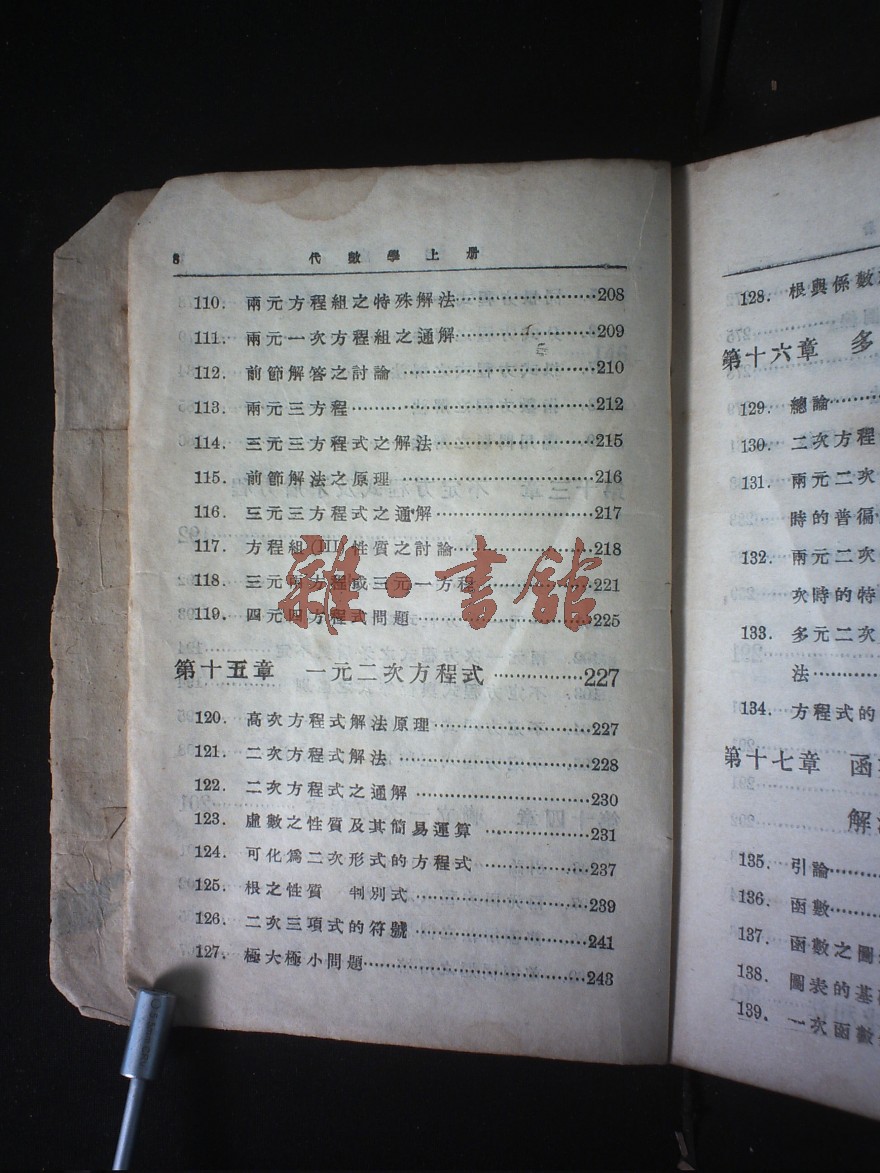 8 代數學上册
110. 兩元方程組之特殊解法……208
111. 兩元一次方程組之通解……209
112. 前節解答之討論……210
113. 兩元三方程……212
114. 三元三方程式之解法……215
115. 前節解法之原理……216
116. 三元三方程式之通解……217
117. 方程組(III)性質之討論……218
118. 三元兩方程或三元一方程……221
119. 四元四方程式問題……225
雜·書館
第十五章 一元二次方程式……227
120. 高次方程式解法原理……227
121. 二次方程式解法……228
122. 二次方程式之通解……230
123. 虛數之性質及其簡易運算……231
124. 可化爲二次形式的方程式……237
125. 根之性質 判別式……239
126. 二次三項式的符號……241
127. 極大極小問題……243
128. 根與係數
第十六章 多
129. 總論……
130. 二次方程
131. 兩元二次
時的普徧
132. 兩元二次
次時的特
133. 多元二次
法……
134. 方程式的
第十七章 函
解
135. 引論……
136. 函數……
137. 函數之圖
138. 圖表的基
139. 一次函數